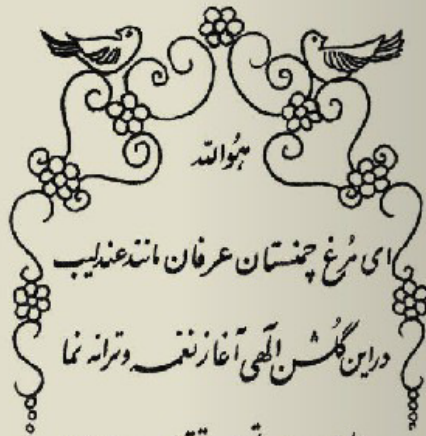 هُوالله
ای مُرغ چمنستان عرفان مانند عندلیب
در این گلشن الٓهی آغاز نغمه و ترانه نما